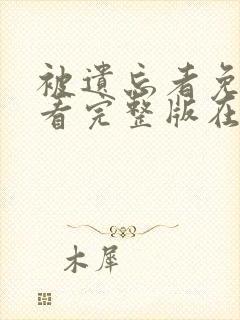 被遗忘者免
看完整版在
木犀